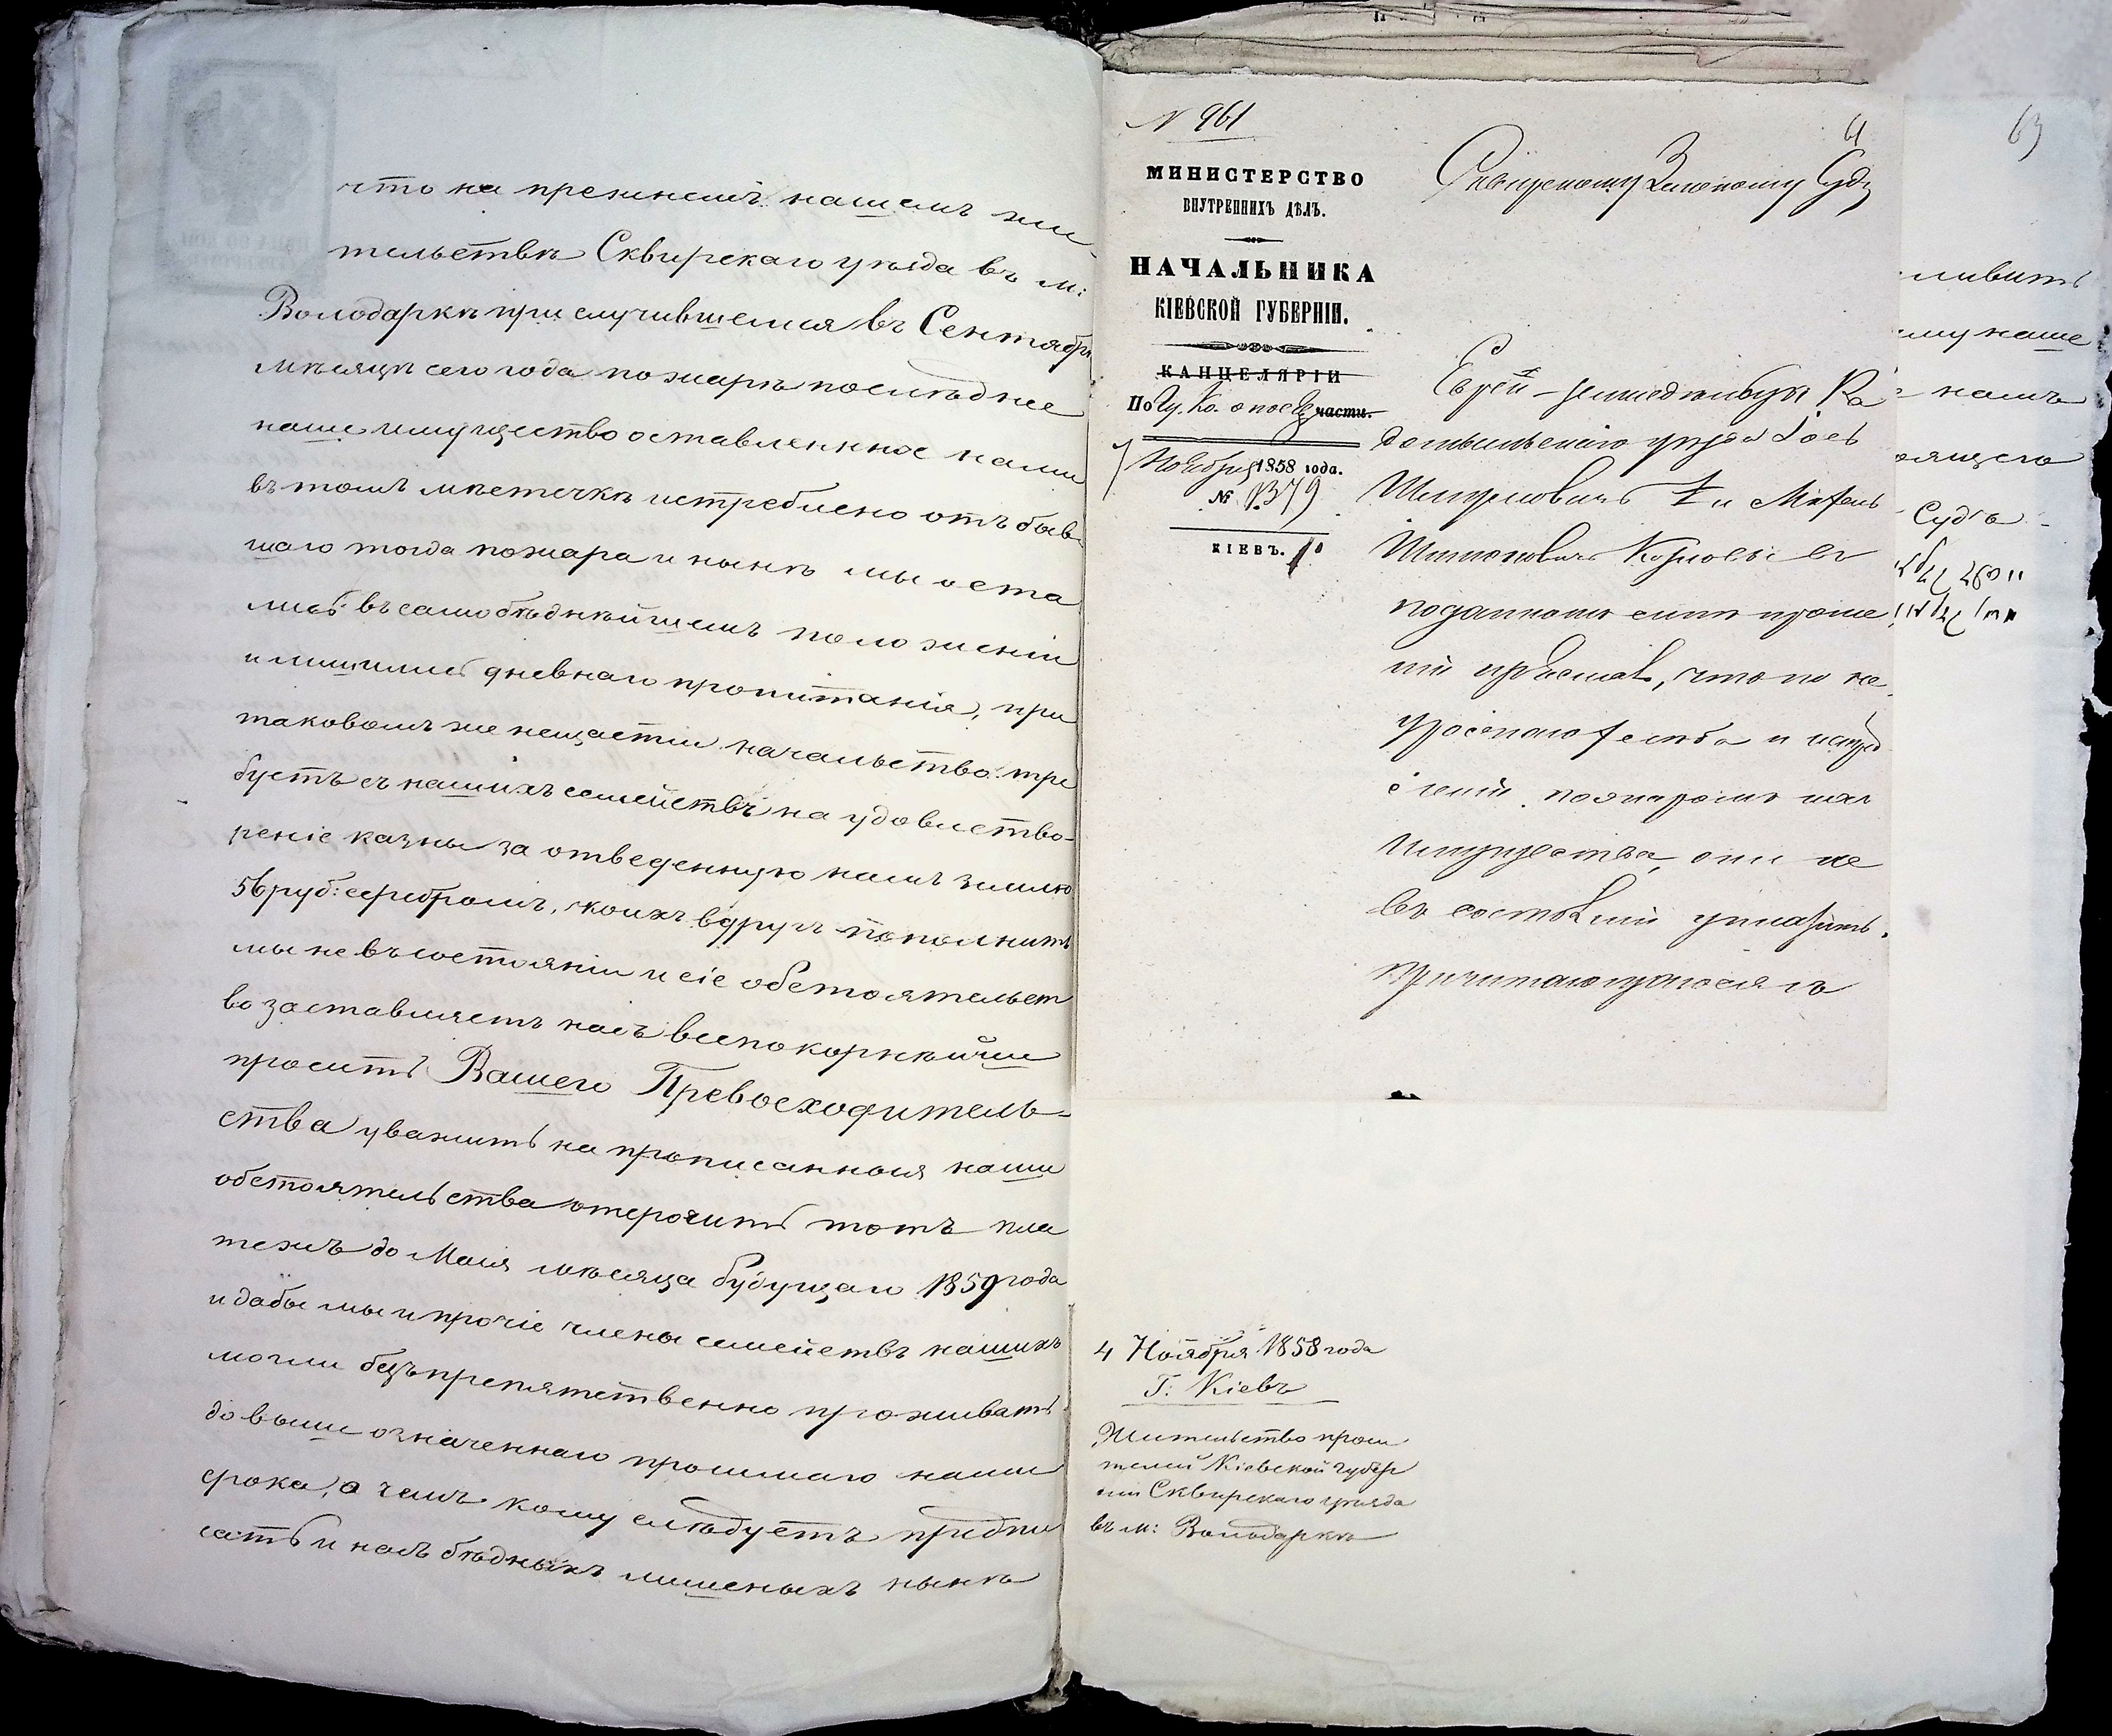 что на прежнемъ нашемъ жи
тельствѣ Сквирскаго уѣзда въ м:
Володаркѣ при случившемся въ Сентябрѣ
мѣсяцѣ сего года пожарѣ последнее
наше имущество оставленное нами
въ томъ мѣстечкѣ истреблено отъ быв
шаго тогда пожара и нынѣ мы оста
лись въ само бѣднѣйшемъ положеніи
и лишились дневнаго пропитанія, при
таковомъ же нещастіи начальство тре
буетъ съ нашихъ семействъ на удовлетво-
реніе казны за отведенную намъ землю
56 руб: серебромъ, коихъ вдругъ пополнить
мы не въ состояніи и сіе обстоятельст
во заставляетъ насъ всепокорнѣйше
просить Вашего Превосходитель-
ства уважить на прописанныя наши
обстоятельства отсрочить тотъ пла
тежъ до Мая мѣсяца будущаго 1859 года
и дабы мы и прочіе члены семействъ нашихъ
могли безъпрепятственно проживать
до выше означеннаго просимаго нами
срока, о чемъ кому слѣдуетъ предпи
сать и насъ бѣдныхъ лишеныхъ нынѣ
N 961
61
МИНИСТЕРСТВО
ВНУТРЕННИХЪ ДѢЛЪ.
НАЧАЛЬНИКА
КІЕВСКОЙ ГУБЕРНІИ.
КАНЦЕЛЯРІИ
По части.
Ноября 1858 года.
№ 1379
КІЕВЪ.
Сквирскому Земскому Суду
Еврей-земледѣльцы Ра
домысльскаго уѣзда
и
въ
поданномъ мнѣ проше
ніи, что по не
урожаю хлѣба и истреб
леніи пожаромъ ихъ
имущества, они не
въ состояніи уплатить
причитающагося съ
4 Ноября 1858 года
Г: Кіевъ
Жительство проси
телей Кіевской Губер
ніи Сквирскаго уѣзда
въ м: Володаркѣ
63
ливить
ему наше
намъ
оящего
Суда